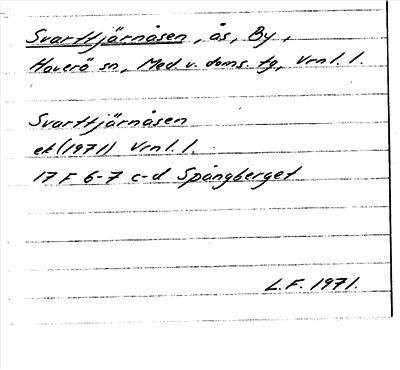 Svarttjärnåsen, ås, By,
Haverö sn, Med v. doms. tg, Vrnl. l.
Svarttjärnåsen
ek (1971) Vrnl. l.
17 F 6-7 c-d Spångberget
L.F. 1971.